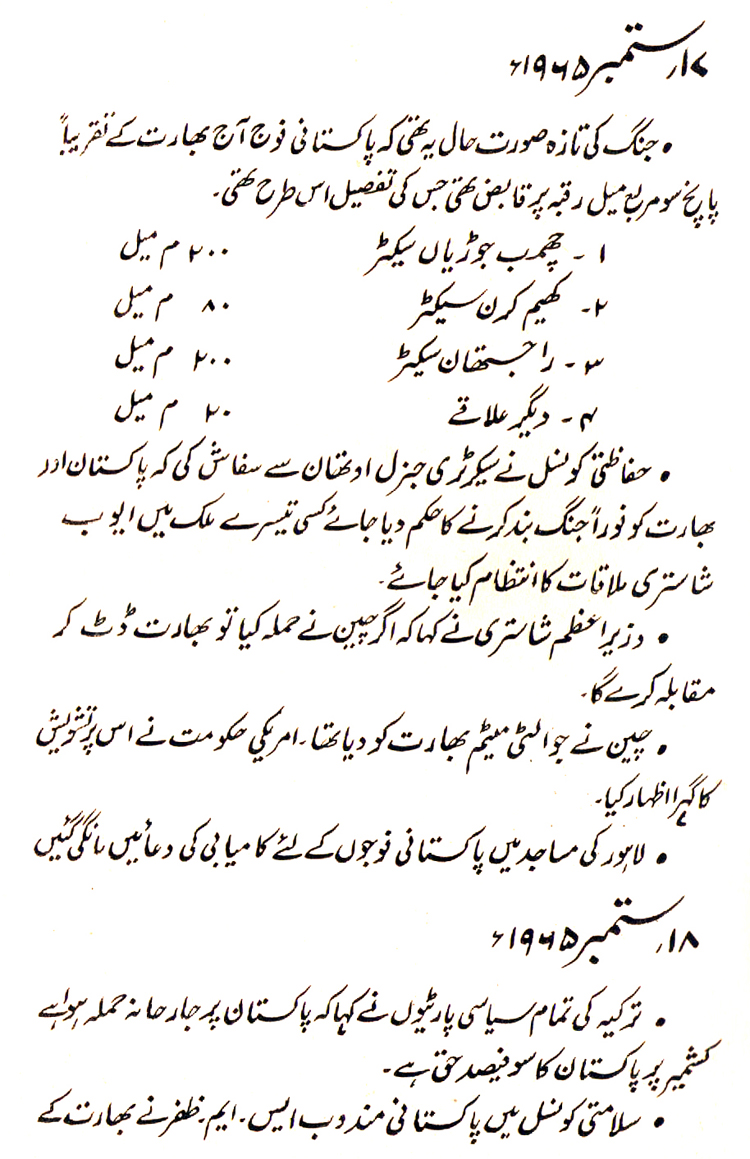 ۱۷ر ستمبر ۱۹۶۵ء
• جنگ کی تازہ صورت حال یہ تھی کہ پاکستانی فوج آج بھارت کے تقریباً
پانچ سو مربع میل رقبہ پر قابض تھی جس کی تفصیل اس طرح تھی۔
۱ - چھمب جوڑیاں سیکٹر ۲۰۰ م میل
۲ - کھیم کرن سیکٹر ۸۰ م میل
۳ - راجستھان سیکٹر ۲۰۰ م میل
۴ - دیگر علاقے ۲۰ م میل
• حفاظتی کونسل نے سیکرٹری جنرل اوتھان سے سفاش کی کہ پاکستان اور
بھارت کو فوراً جنگ بند کرنے کا حکم دیا جائے کسی تیسرے ملک میں ایوب
شاستری ملاقات کا انتظام کیا جائے۔
• وزیراعظم شاستری نے کہا کہ اگر چین نے حملہ کیا تو بھارت ڈٹ کر
مقابلہ کرے گا۔
• چین نے جو الٹی میٹم بھارت کو دیا تھا۔ امریکی حکومت نے اس پر تشویش
کا گہرا اظہار کیا۔
• لاہور کی مساجد میں پاکستانی فوجوں کے لئے کامیابی کی دعائیں مانگی گئیں
۱۸ر ستمبر ۱۹۶۵ء
• ترکیہ کی تمام سیاسی پارٹیوں نے کہا کہ پاکستان پر جارحانہ حملہ ہوا ہے
کشمیر پر پاکستان کا سو فیصد حق ہے۔
• سلامتی کونسل میں پاکستانی مندوب ایس۔ ایم۔ ظفر نے بھارت کے